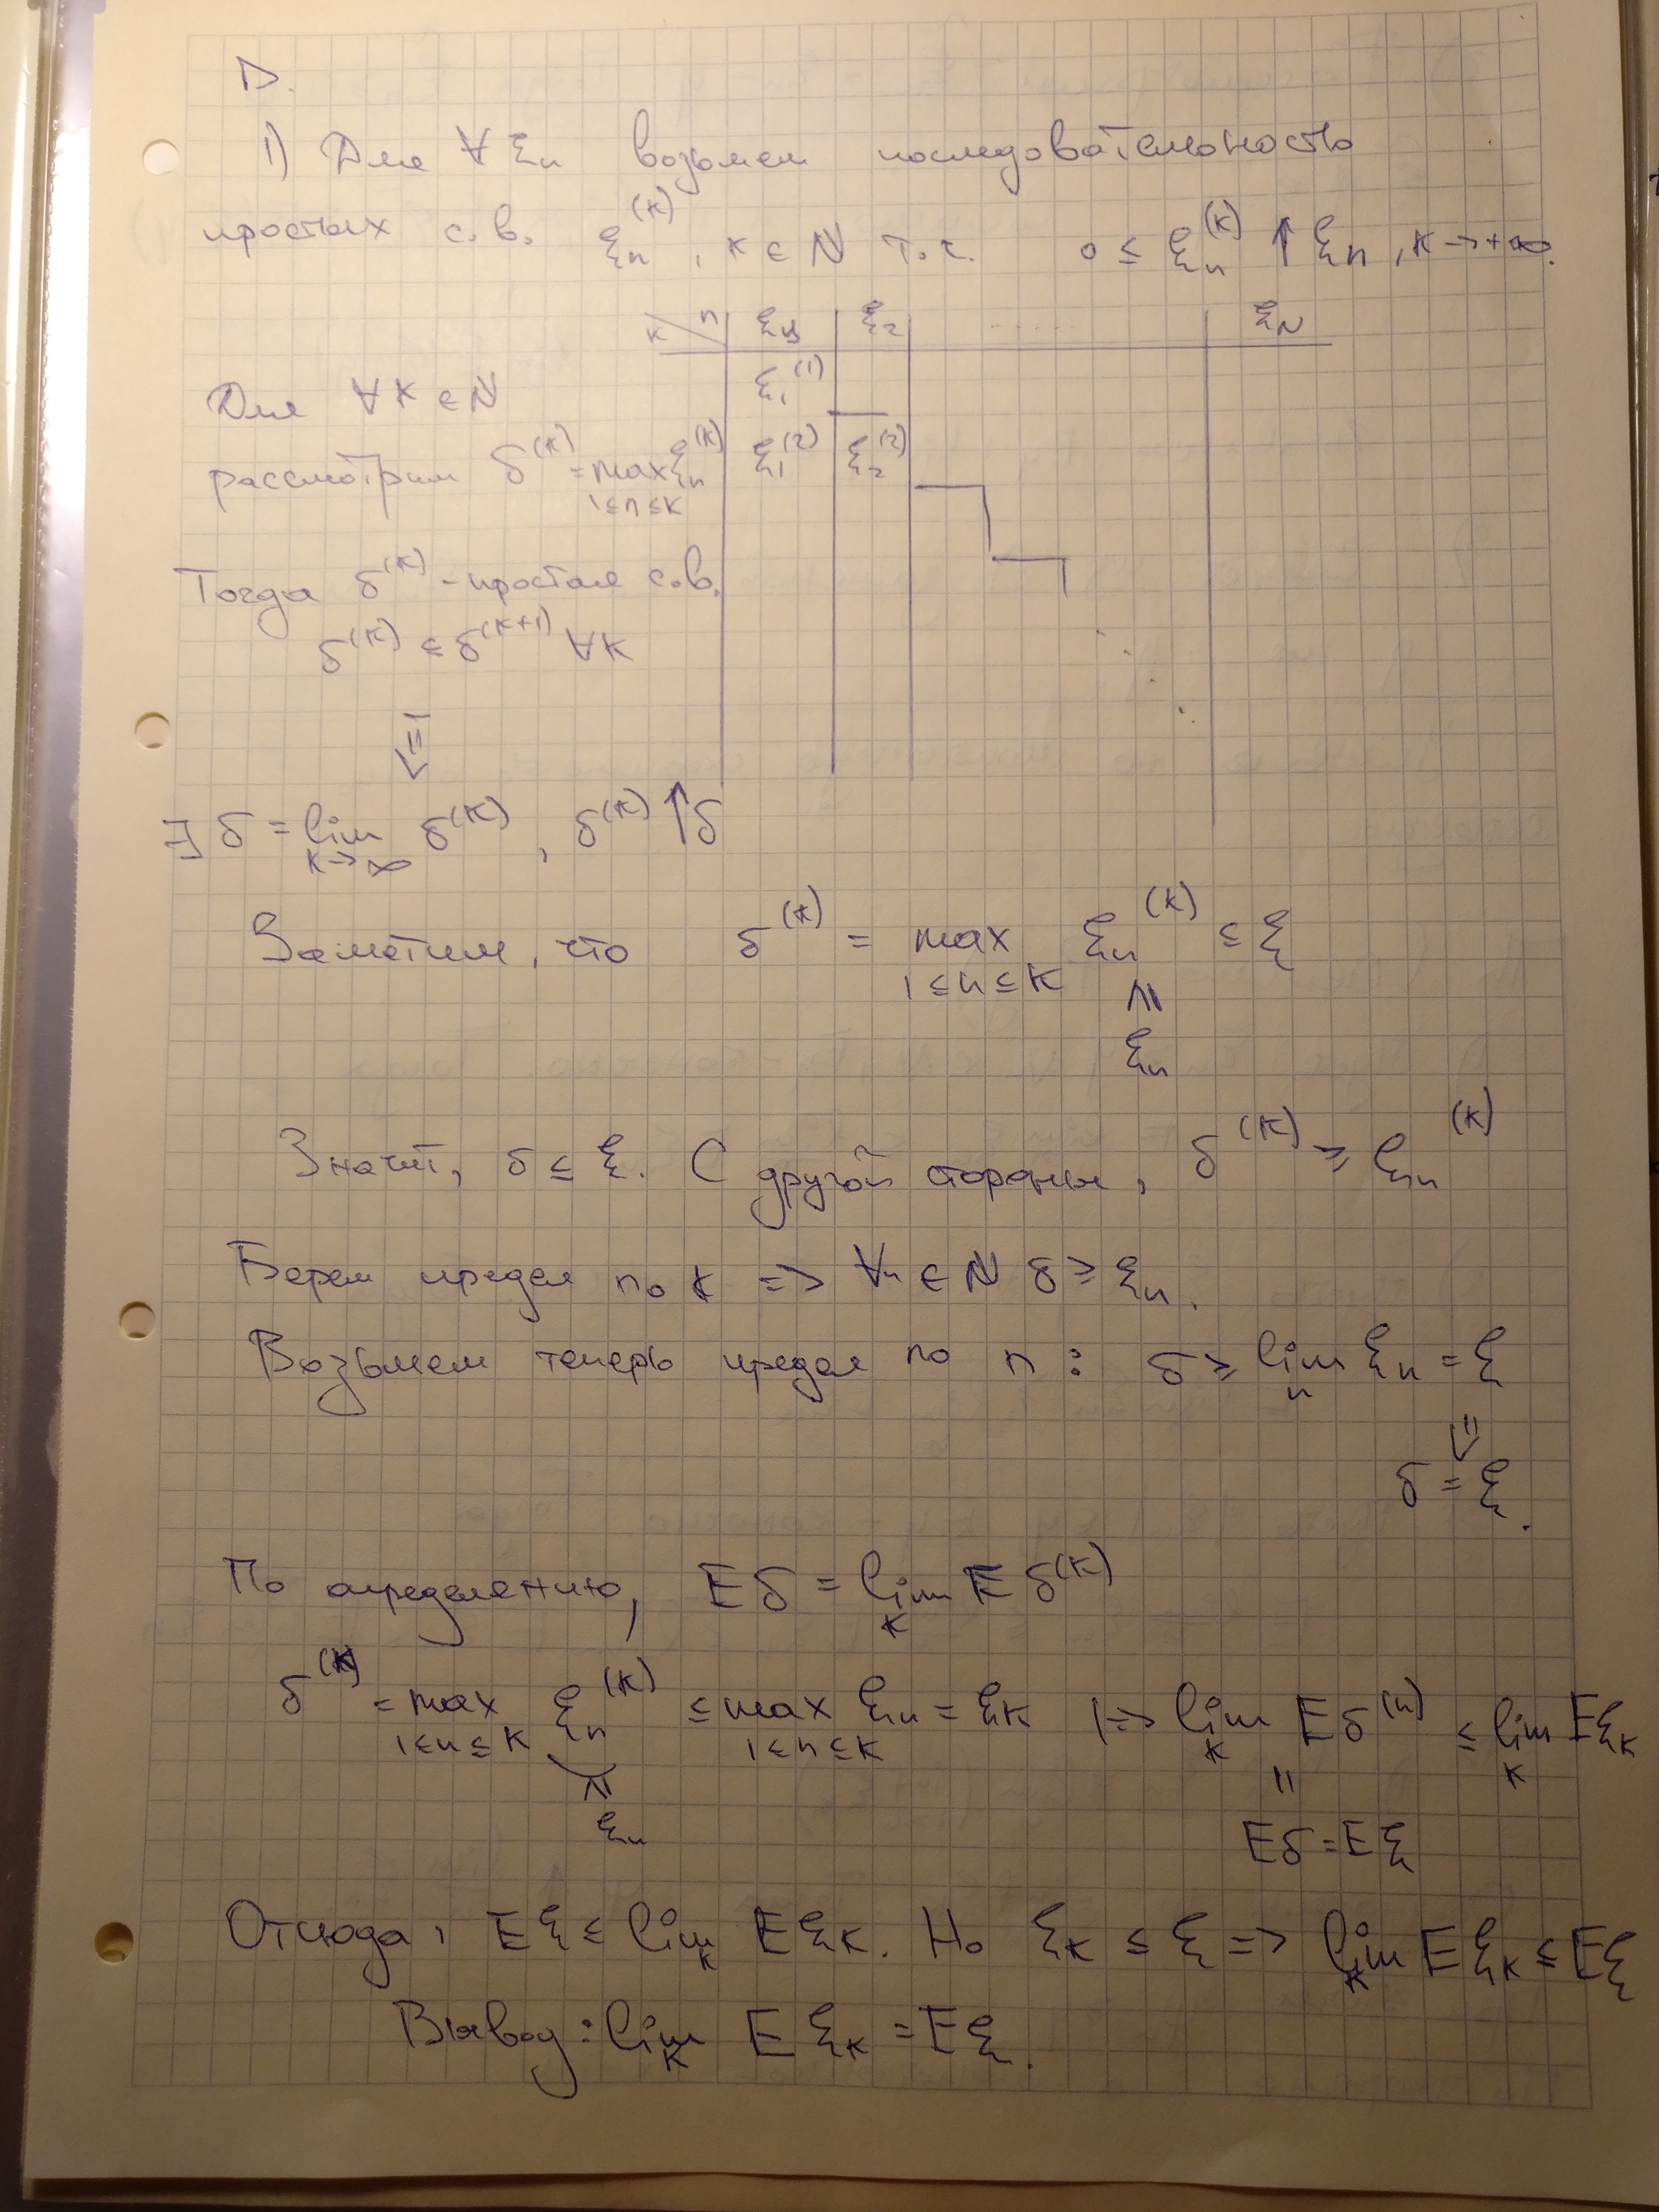 D.
1) Для ∀ ξₙ возьмем последовательность
простых с.в. ξₙ⁽ᴷ⁾, k ∈ N т.ч. 0 ≤ ξₙ⁽ᴷ⁾ ↑ ξₙ, k → +∞.
k \ n ξ₁ ξ₂ ..... ξ_N
ξ₁⁽¹⁾
Для ∀ k ∈ N
рассмотрим δ⁽ᴷ⁾ = max ξₙ⁽ᴷ⁾ ξ₁⁽²⁾ ξ₂⁽²⁾
1≤n≤k
Тогда δ⁽ᴷ⁾ - простая с.в.
δ⁽ᴷ⁾ ≤ δ⁽ᴷ⁺¹⁾ ∀k
⇓
∃ δ = lim δ⁽ᴷ⁾, δ⁽ᴷ⁾ ↑ δ
k→∞
Заметим, что δ⁽ᴷ⁾ = max ξₙ⁽ᴷ⁾ ≤ ξ
1≤n≤k
ξₙ
Значит, δ ≤ ξ. С другой стороны, δ⁽ᴷ⁾ ≥ ξₙ⁽ᴷ⁾
Берем предел по k => ∀n ∈ N δ ≥ ξₙ.
Возьмем теперь предел по n: δ ≥ lim ξₙ = ξ
n
⇓
δ = ξ.
По определению, Eδ = lim E δ⁽ᴷ⁾
k
δ⁽ᴷ⁾ = max ξₙ⁽ᴷ⁾ ≤ max ξₙ = ξₖ |=> lim E δ⁽ⁿ⁾ ≤ lim Eξₖ
1≤n≤k 1≤n≤k k k
ξₙ
Eδ = Eξ
Отсюда, Eξ ≤ lim Eξₖ. Но ξₖ ≤ ξ => lim Eξₖ ≤ Eξ
k k
Вывод: lim E ξₖ = Eξ.
k